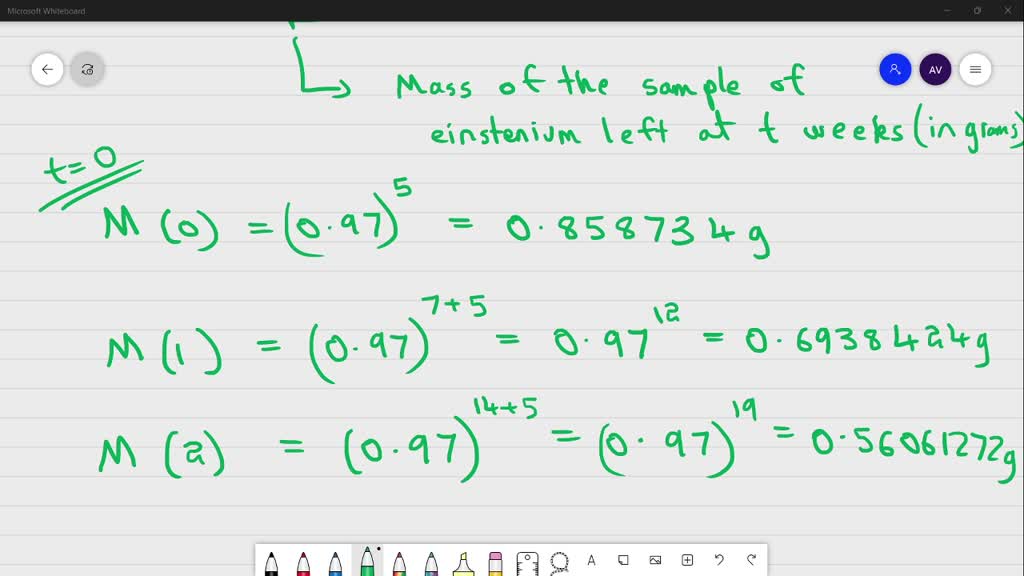 Microsoft Whiteboard
AV
Mass of the sample of
einstenium left at t weeks (in grams)
t=0
M(0) = (0.97)^5 = 0.858734g
M(1) = (0.97)^7+5 = 0.97^12 = 0.6938424g
M(2) = (0.97)^14+5 = (0.97)^19 = 0.56061272g
A